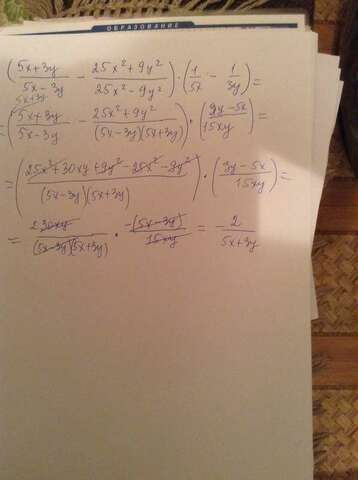 ОБРАЗОВАНИЕ
((5x+3y)/(5x-3y) - (25x²+9y²)/(25x²-9y²)) · (1/5x - 1/3y) =
5x+3y
= ((5x+3y)/(5x-3y) - (25x²+9y²)/((5x-3y)(5x+3y))) · ((9y-5x)/15xy) =
= ((25x²+30xy+9y²-25x²-9y²)/((5x-3y)(5x+3y))) · ((3y-5x)/15xy) =
= (2 30xy)/((5x-3y)(5x+3y)) · (-(5x-3y))/(15xy) = - 2/(5x+3y)